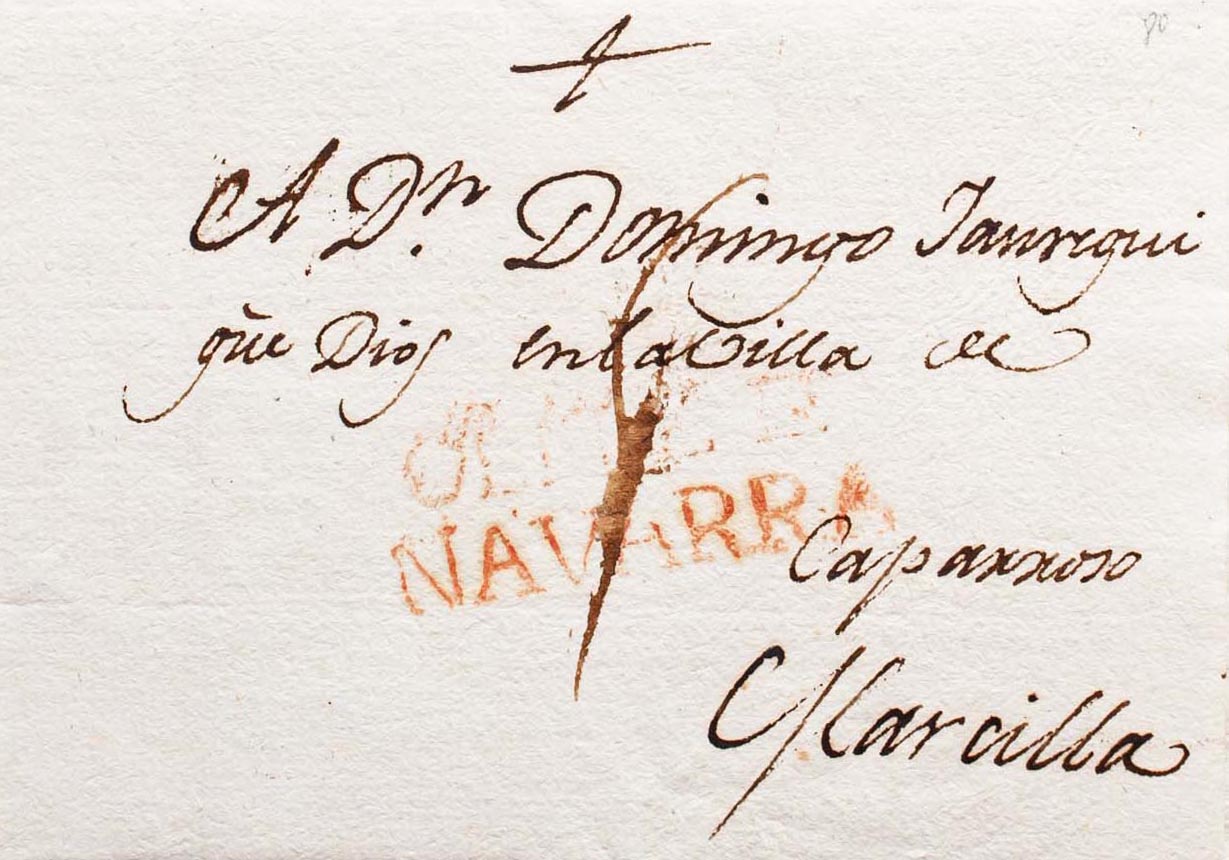 A Dn. Domingo Jauregui
gūe Dios en la Villa de
NAVARRA
Caparroso
Marcilla